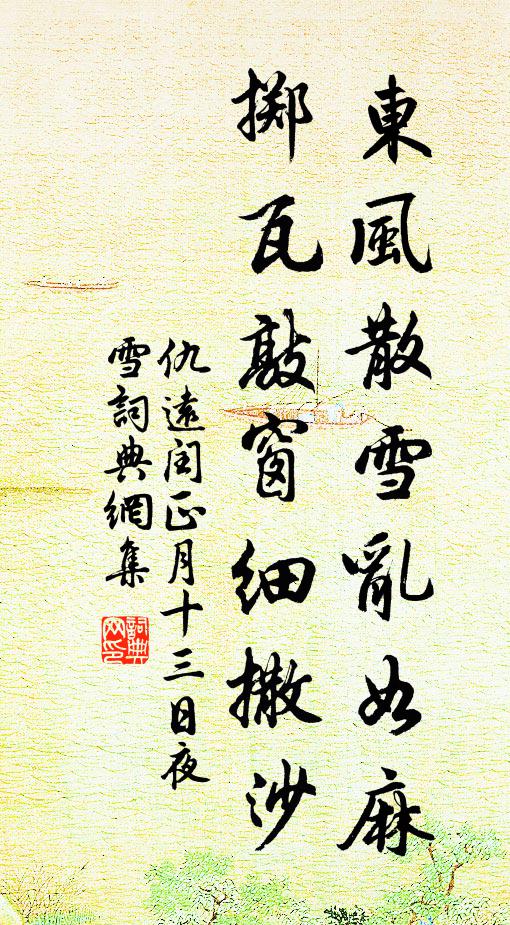 東風散雪亂如麻
擲瓦敲窗細撒沙
仇遠閏正月十三日夜
雪詞典網集
詞典
网印